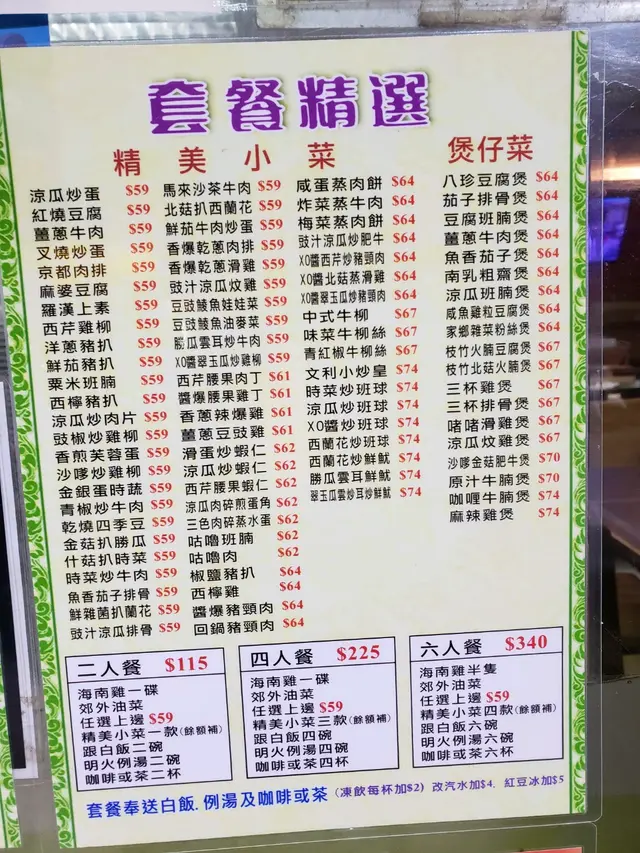 套餐精選
精美小菜
涼瓜炒蛋 $59
紅燒豆腐 $59
薑蔥牛肉 $59
叉燒炒蛋 $59
京都肉排 $59
麻婆豆腐 $59
羅漢上素 $59
西芹雞柳 $59
洋蔥豬扒 $59
鮮茄豬扒 $59
粟米班腩 $59
西檸豬扒 $59
涼瓜炒肉片 $59
豉椒炒雞柳 $59
香煎芙蓉蛋 $59
沙嗲炒雞柳 $59
金銀蛋時蔬 $59
青椒炒牛肉 $59
乾燒四季豆 $59
金菇扒勝瓜 $59
什菇扒時菜 $59
時菜炒牛肉 $59
魚香茄子排骨 $59
鮮雜菌扒蘭花 $59
豉汁涼瓜排骨 $59
馬來沙茶牛肉 $59
北菇扒西蘭花 $59
鮮茄牛肉炒蛋 $59
香爆乾蔥肉排 $59
香爆乾蔥滑雞 $59
豉汁涼瓜炆雞 $59
豆豉鯪魚娃娃菜 $59
豆豉鯪魚油麥菜 $59
勝瓜雲耳炒牛肉 $59
XO醬翠玉瓜炒雞柳 $59
西芹腰果肉丁 $61
醬爆腰果雞丁 $61
香蔥辣爆雞 $61
薑蔥豆豉雞 $61
滑蛋炒蝦仁 $62
涼瓜炒蝦仁 $62
西芹腰果蝦仁 $62
涼瓜肉碎煎蛋角 $62
三色肉碎蒸水蛋 $62
咕嚕班腩 $62
咕嚕肉 $62
椒鹽豬扒 $64
西檸雞 $64
醬爆豬頸肉 $64
回鍋豬頸肉 $64
咸蛋蒸肉餅 $64
炸菜蒸牛肉 $64
梅菜蒸肉餅 $64
豉汁涼瓜炒肥牛 $64
XO醬西芹炒豬頸肉 $64
XO醬北菇蒸滑雞 $64
XO醬翠玉瓜炒豬頸肉 $64
中式牛柳 $67
味菜牛柳絲 $67
青紅椒牛柳絲 $67
文利小炒皇 $74
時菜炒班球 $74
涼瓜炒班球 $74
XO醬炒班球 $74
西蘭花炒班球 $74
西蘭花炒鮮魷 $74
勝瓜雲耳鮮魷 $74
翠玉瓜雲耳炒鮮魷 $74
煲仔菜
八珍豆腐煲 $64
茄子排骨煲 $64
豆腐班腩煲 $64
薑蔥牛肉煲 $64
魚香茄子煲 $64
南乳粗齋煲 $64
涼瓜班腩煲 $64
咸魚雞粒豆腐煲 $64
家鄉雜菜粉絲煲 $64
枝竹火腩豆腐煲 $67
枝竹北菇火腩煲 $67
三杯雞煲 $67
三杯排骨煲 $67
啫啫滑雞煲 $67
涼瓜炆雞煲 $67
沙嗲金菇肥牛煲 $70
原汁牛腩煲 $70
咖喱牛腩煲 $74
麻辣雞煲 $74
二人餐 $115
海南雞一碟
郊外油菜
任選上邊$59
精美小菜一款(餘額補)
跟白飯二碗
明火例湯二碗
咖啡或茶二杯
四人餐 $225
海南雞一碟
郊外油菜
任選上邊$59
精美小菜三款(餘額補)
跟白飯四碗
明火例湯四碗
咖啡或茶四杯
六人餐 $340
海南雞半隻
郊外油菜
任選上邊$59
精美小菜四款(餘額補)
跟白飯六碗
明火例湯六碗
咖啡或茶六杯
套餐奉送白飯. 例湯及咖啡或茶 (凍飲每杯加$2) 改汽水加$4. 紅豆冰加$5